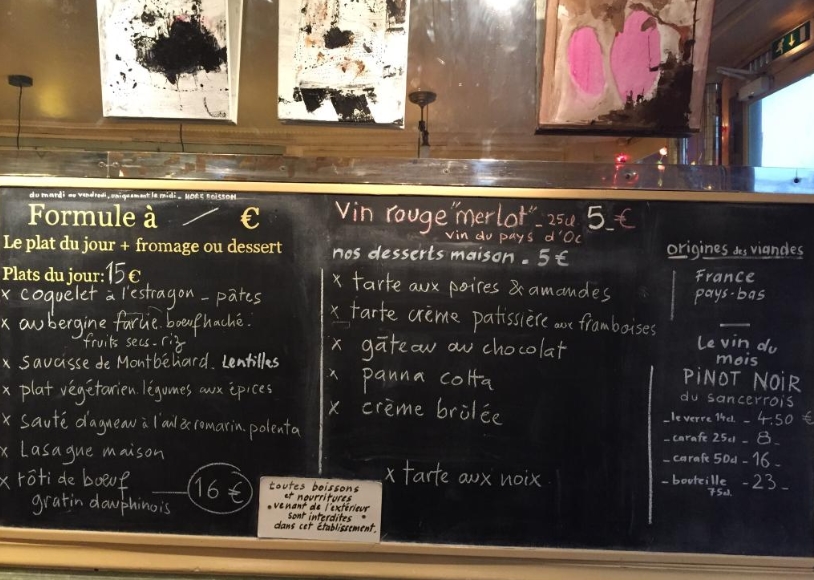 du mardi au vendredi, uniquement le midi - HORS BOISSON
Formule à / €
Le plat du jour + fromage ou dessert
Plats du jour: 15 €
x coquelet à l'estragon - pâtes
x aubergine farcie. bœuf haché.
fruits secs. riz
x Saucisse de Montbéliard. Lentilles
x plat végétarien. légumes aux épices
x sauté d'agneau à l'ail & romarin. polenta
x Lasagne maison
x rôti de bœuf
gratin dauphinois
16 €
toutes boissons
et nourritures
• venant de l'extérieur •
sont interdites
dans cet établissement.
Vin rouge "merlot" - 25cl 5 - €
vin du pays d'Oc
nos desserts maison . 5 €
x tarte aux poires & amandes
x tarte crème patissière aux framboises
x gâteau au chocolat
x panna cotta
x crème brûlée
x tarte aux noix
origines des viandes
France
pays-bas
Le vin du
mois
PiNOT NOIR
du sancerrois
- le verre 14cl - 4.50 €
- carafe 25cl - 8 -
- carafe 50cl - 16 -
- bouteille - 23 -
75cl.